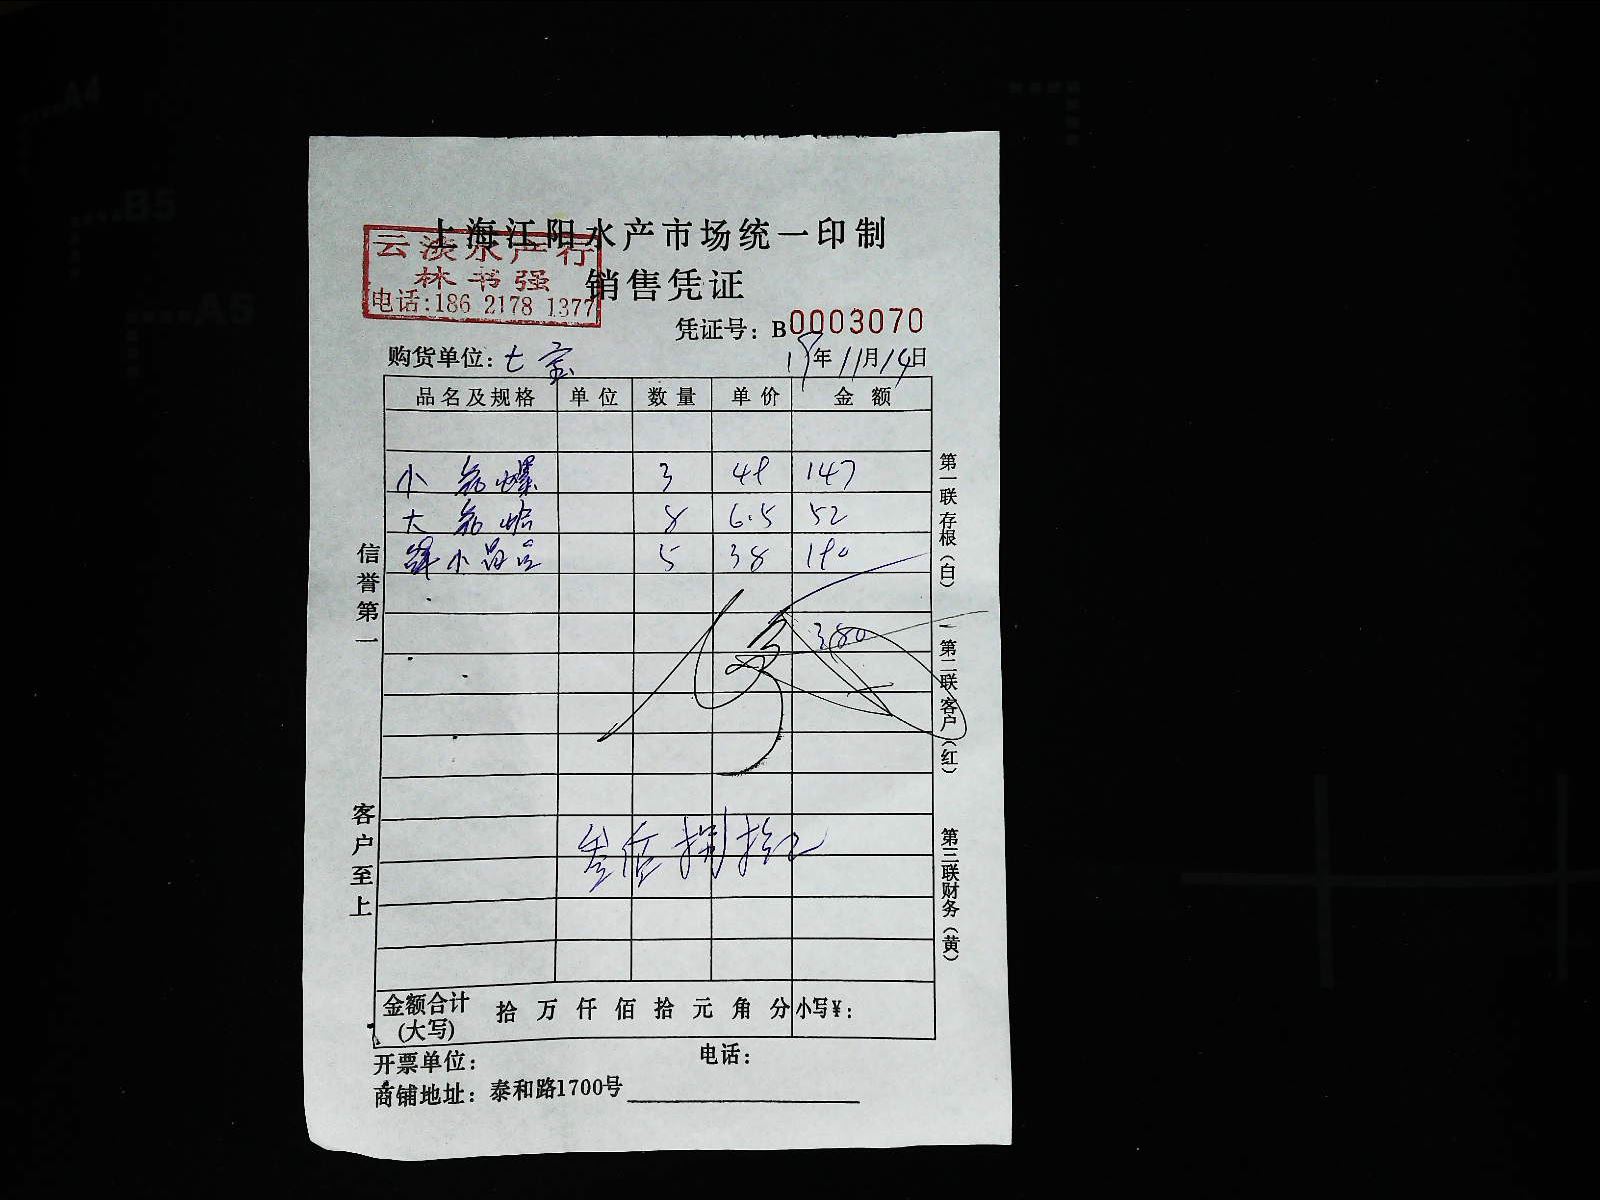 上海江阳水产市场统一印制
云淡水产行
林书强
电话:186 2178 1377
销售凭证
凭证号: B0003070
购货单位: 七宝
19年11月14日
品名及规格 单位 数量 单价 金额
小 螺 3 49 147
大 蛤 8 6.5 52
小 5 38 190
380
叁佰捌拾元
信誉第一
客户至上
第一联 存根(白)
第二联 客户(红)
第三联 财务(黄)
金额合计(大写) 拾 万 仟 佰 拾 元 角 分 小写¥:
开票单位: 电话:
商铺地址: 泰和路1700号